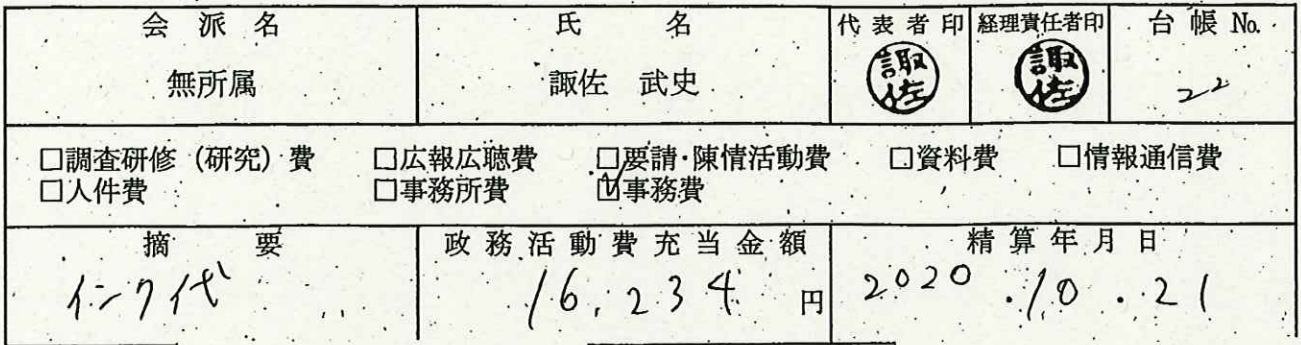 会派名 氏名 代表者印 経理責任者印 台帳No.
無所属 諏佐 武史 諏佐 諏佐 22
□調査研修（研究）費 □広報広聴費 □要請・陳情活動費 □資料費 □情報通信費
□人件費 □事務所費 ☑事務費
摘要 政務活動費充当金額 精算年月日
インク代 16,234 円 2020.10.21